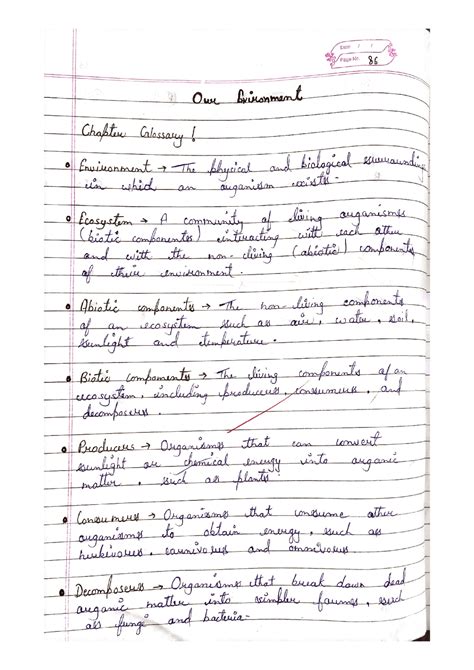 Date / /
Page No. 86
Our Environment
Chapter Glossary !
• Environment → The physical and biological surrounding
in which an organism exists.
• Ecosystem → A community of living organisms
(biotic components) interacting with each other
and with the non-living (abiotic) components
of their environment.
• Abiotic components → The non-living components
of an ecosystem such as air, water, soil,
sunlight and temperature.
• Biotic components → The living components of an
ecosystem, including producers, consumers, and
decomposers.
• Producers → Organisms that can convert
sunlight or chemical energy into organic
matter, such as plants.
• Consumers → Organisms that consume other
organisms to obtain energy, such as
herbivores, carnivores and omnivores.
• Decomposers → Organisms that break down dead
organic matter into simpler forms, such
as fungi and bacteria.